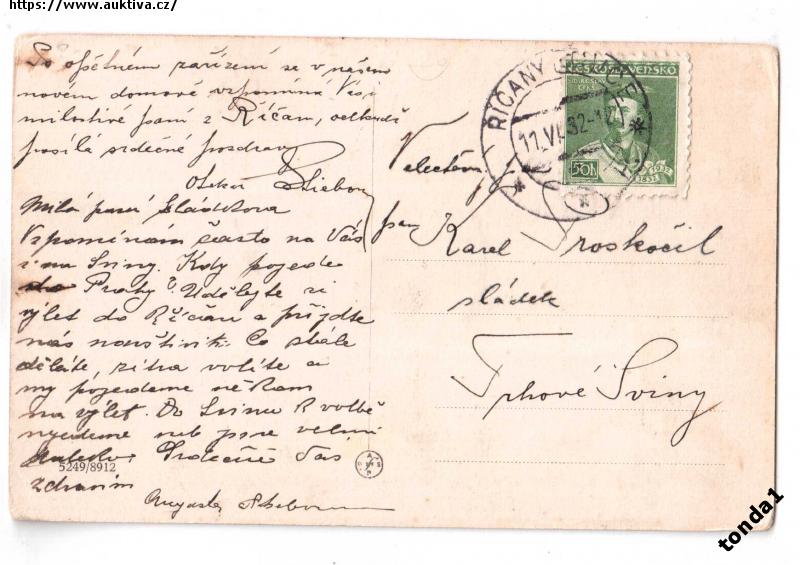 https://www.auktiva.cz/
Po opětném zařízení se v našem
novém domově vzpomíná Vás,
milostivé paní z Říčan, velkodě
posílá srdečné pozdravy
Otakar Stiebor
Milá paní Sládkova
Vzpomínám často na Vás
i na Sviny. Kdy pojedete
do Prahy? Udělejte si
výlet do Říčan a přijdte
nás navštívit. Co stále
děláte, zítra volíte a
my pojedeme někam
na výlet. Do Svinu k volbě
nejedeme neb jsme velmi
daleko. Srdečně Vás
zdravím
Stieborova
5249/8912
ŘÍČANY
11.VI.32-12
ČESKOSLOVENSKO
50h
1832
1932
Velectěný pan
pan
Karel Proskočil
sládek
Trhové Sviny
tonda1